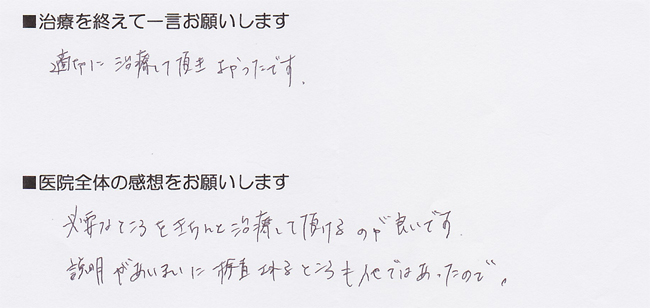 ■治療を終えて一言お願いします
適切に治療して頂きよかったです.
■医院全体の感想をお願いします
必要なところをきちんと治療して頂けるのが良いです.
説明があいまいに検査されるところも他ではあったので。